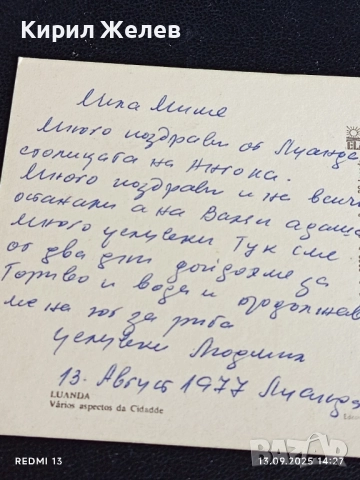 Кирил Желев
Мила Миме
Много поздрави от Луанда
столицата на Ангола.
Много поздрави и на всич
останали а на Ваня адаша
много целувки. Тук сме
от два дни дойдохме за
Гориво и вода и продължав
ме на юг за риба
целувки Людмил
13. Август 1977 Луанда
LUANDA
Vários aspectos da Cidadde
BAZAR
REDMI 13
13.09.2025 14:27